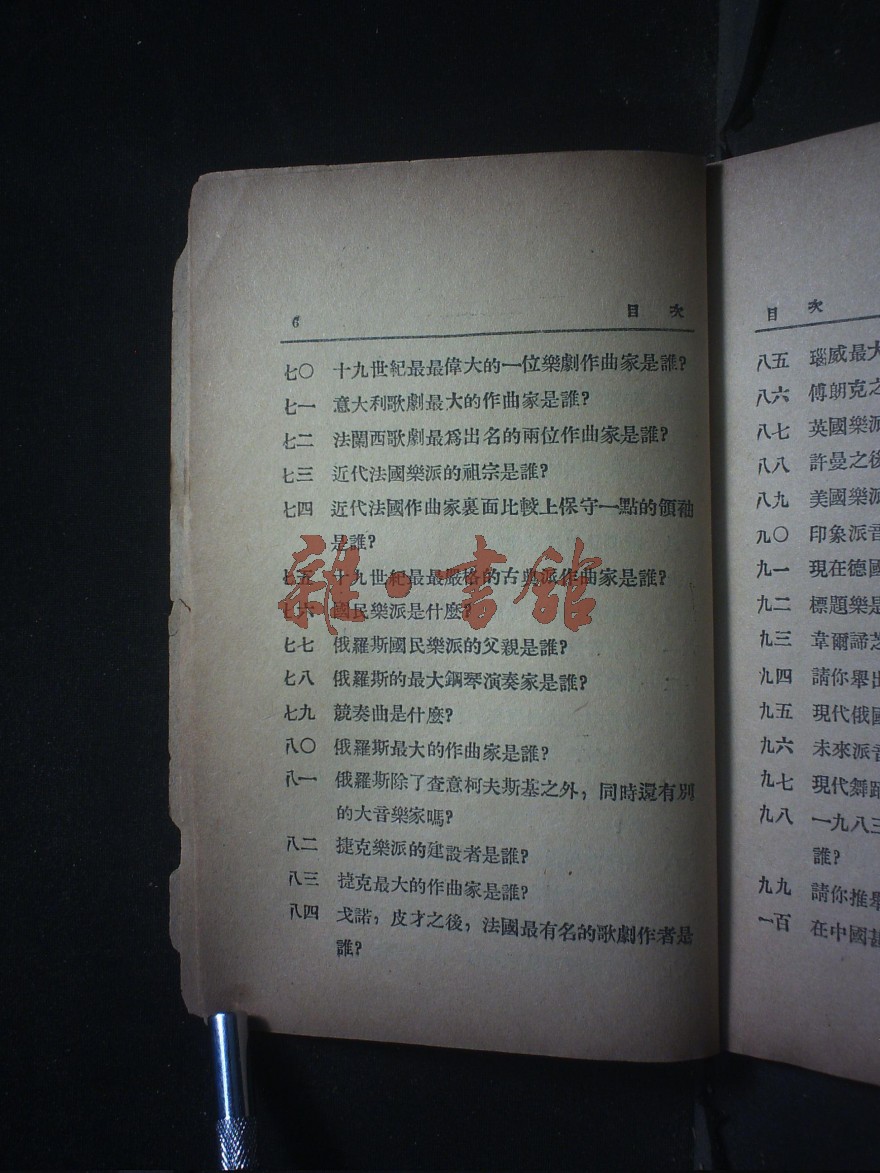 6 目次
七〇 十九世紀最最偉大的一位樂劇作曲家是誰?
七一 意大利歌劇最大的作曲家是誰?
七二 法蘭西歌劇最爲出名的兩位作曲家是誰?
七三 近代法國樂派的祖宗是誰?
七四 近代法國作曲家裏面比較上保守一點的領袖
是誰?
七五 十九世紀最最嚴格的古典派作曲家是誰?
七六 國民樂派是什麼?
七七 俄羅斯國民樂派的父親是誰?
七八 俄羅斯的最大鋼琴演奏家是誰?
七九 競奏曲是什麼?
八〇 俄羅斯最大的作曲家是誰?
八一 俄羅斯除了查意柯夫斯基之外,同時還有別
的大音樂家嗎?
八二 捷克樂派的建設者是誰?
八三 捷克最大的作曲家是誰?
八四 戈諾,皮才之後,法國最有名的歌劇作者是
誰?
雜·書館
目次
八五 瑙威最大
八六 傅朗克之
八七 英國樂派
八八 許曼之後
八九 美國樂派
九〇 印象派音
九一 現在德國
九二 標題樂是
九三 韋爾諦芝
九四 請你舉出
九五 現代俄國
九六 未來派音
九七 現代舞蹈
九八 一九八三
誰?
九九 請你推舉
一百 在中國甚